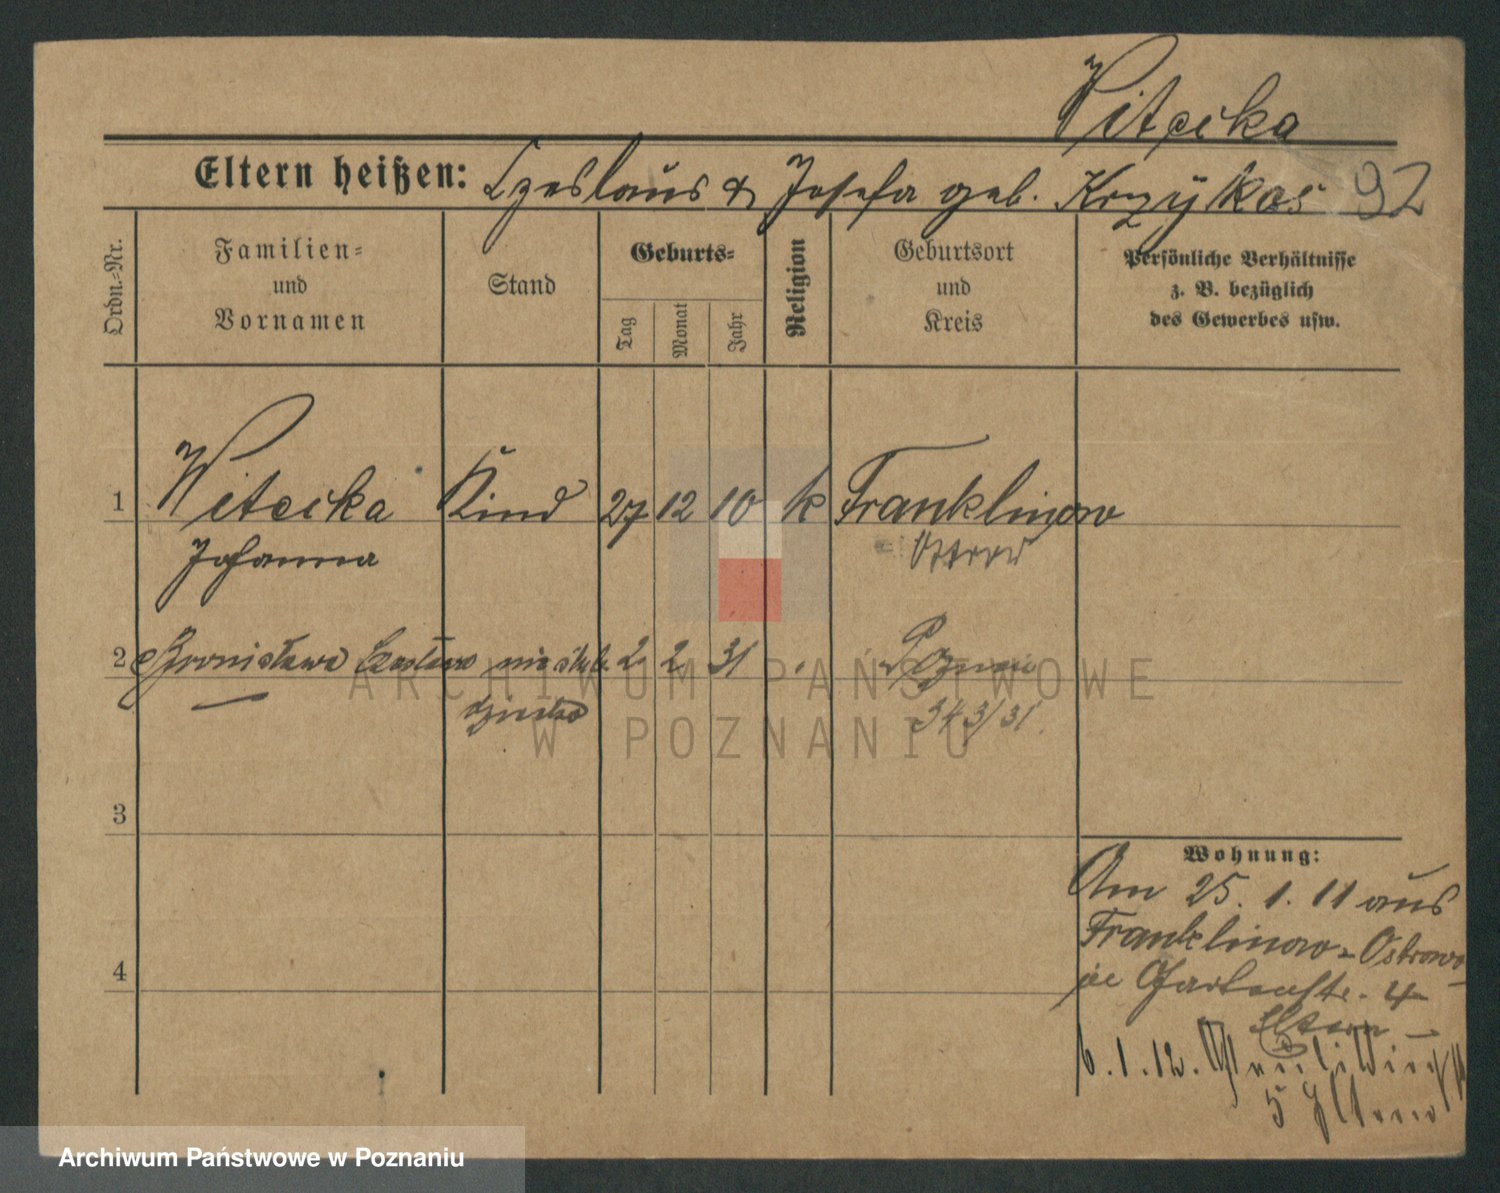 Witecka
Eltern heißen: Czeslaus & Josefa geb. Krzykos 92
Ordn.=Nr.
Familien=
und
Vornamen
Stand
Geburts=
Tag
Monat
Jahr
Religion
Geburtsort
und
Kreis
Persönliche Verhältnisse
z. B. bezüglich
des Gewerbes usw.
1 Witecka Kind 27 12 10 k Franklinow
Johanna Ostrow
2 Bronisława nieślub. 2 2 31 Poznań
dziecko 343/31.
3
4
Wohnung:
Am 25. 1. 11 aus
Franklinow - Ostrowo
4
Eltern
6. 1. 12.
5 Eltern
ARCHIWUM PAŃSTWOWE
W POZNANIU
Archiwum Państwowe w Poznaniu